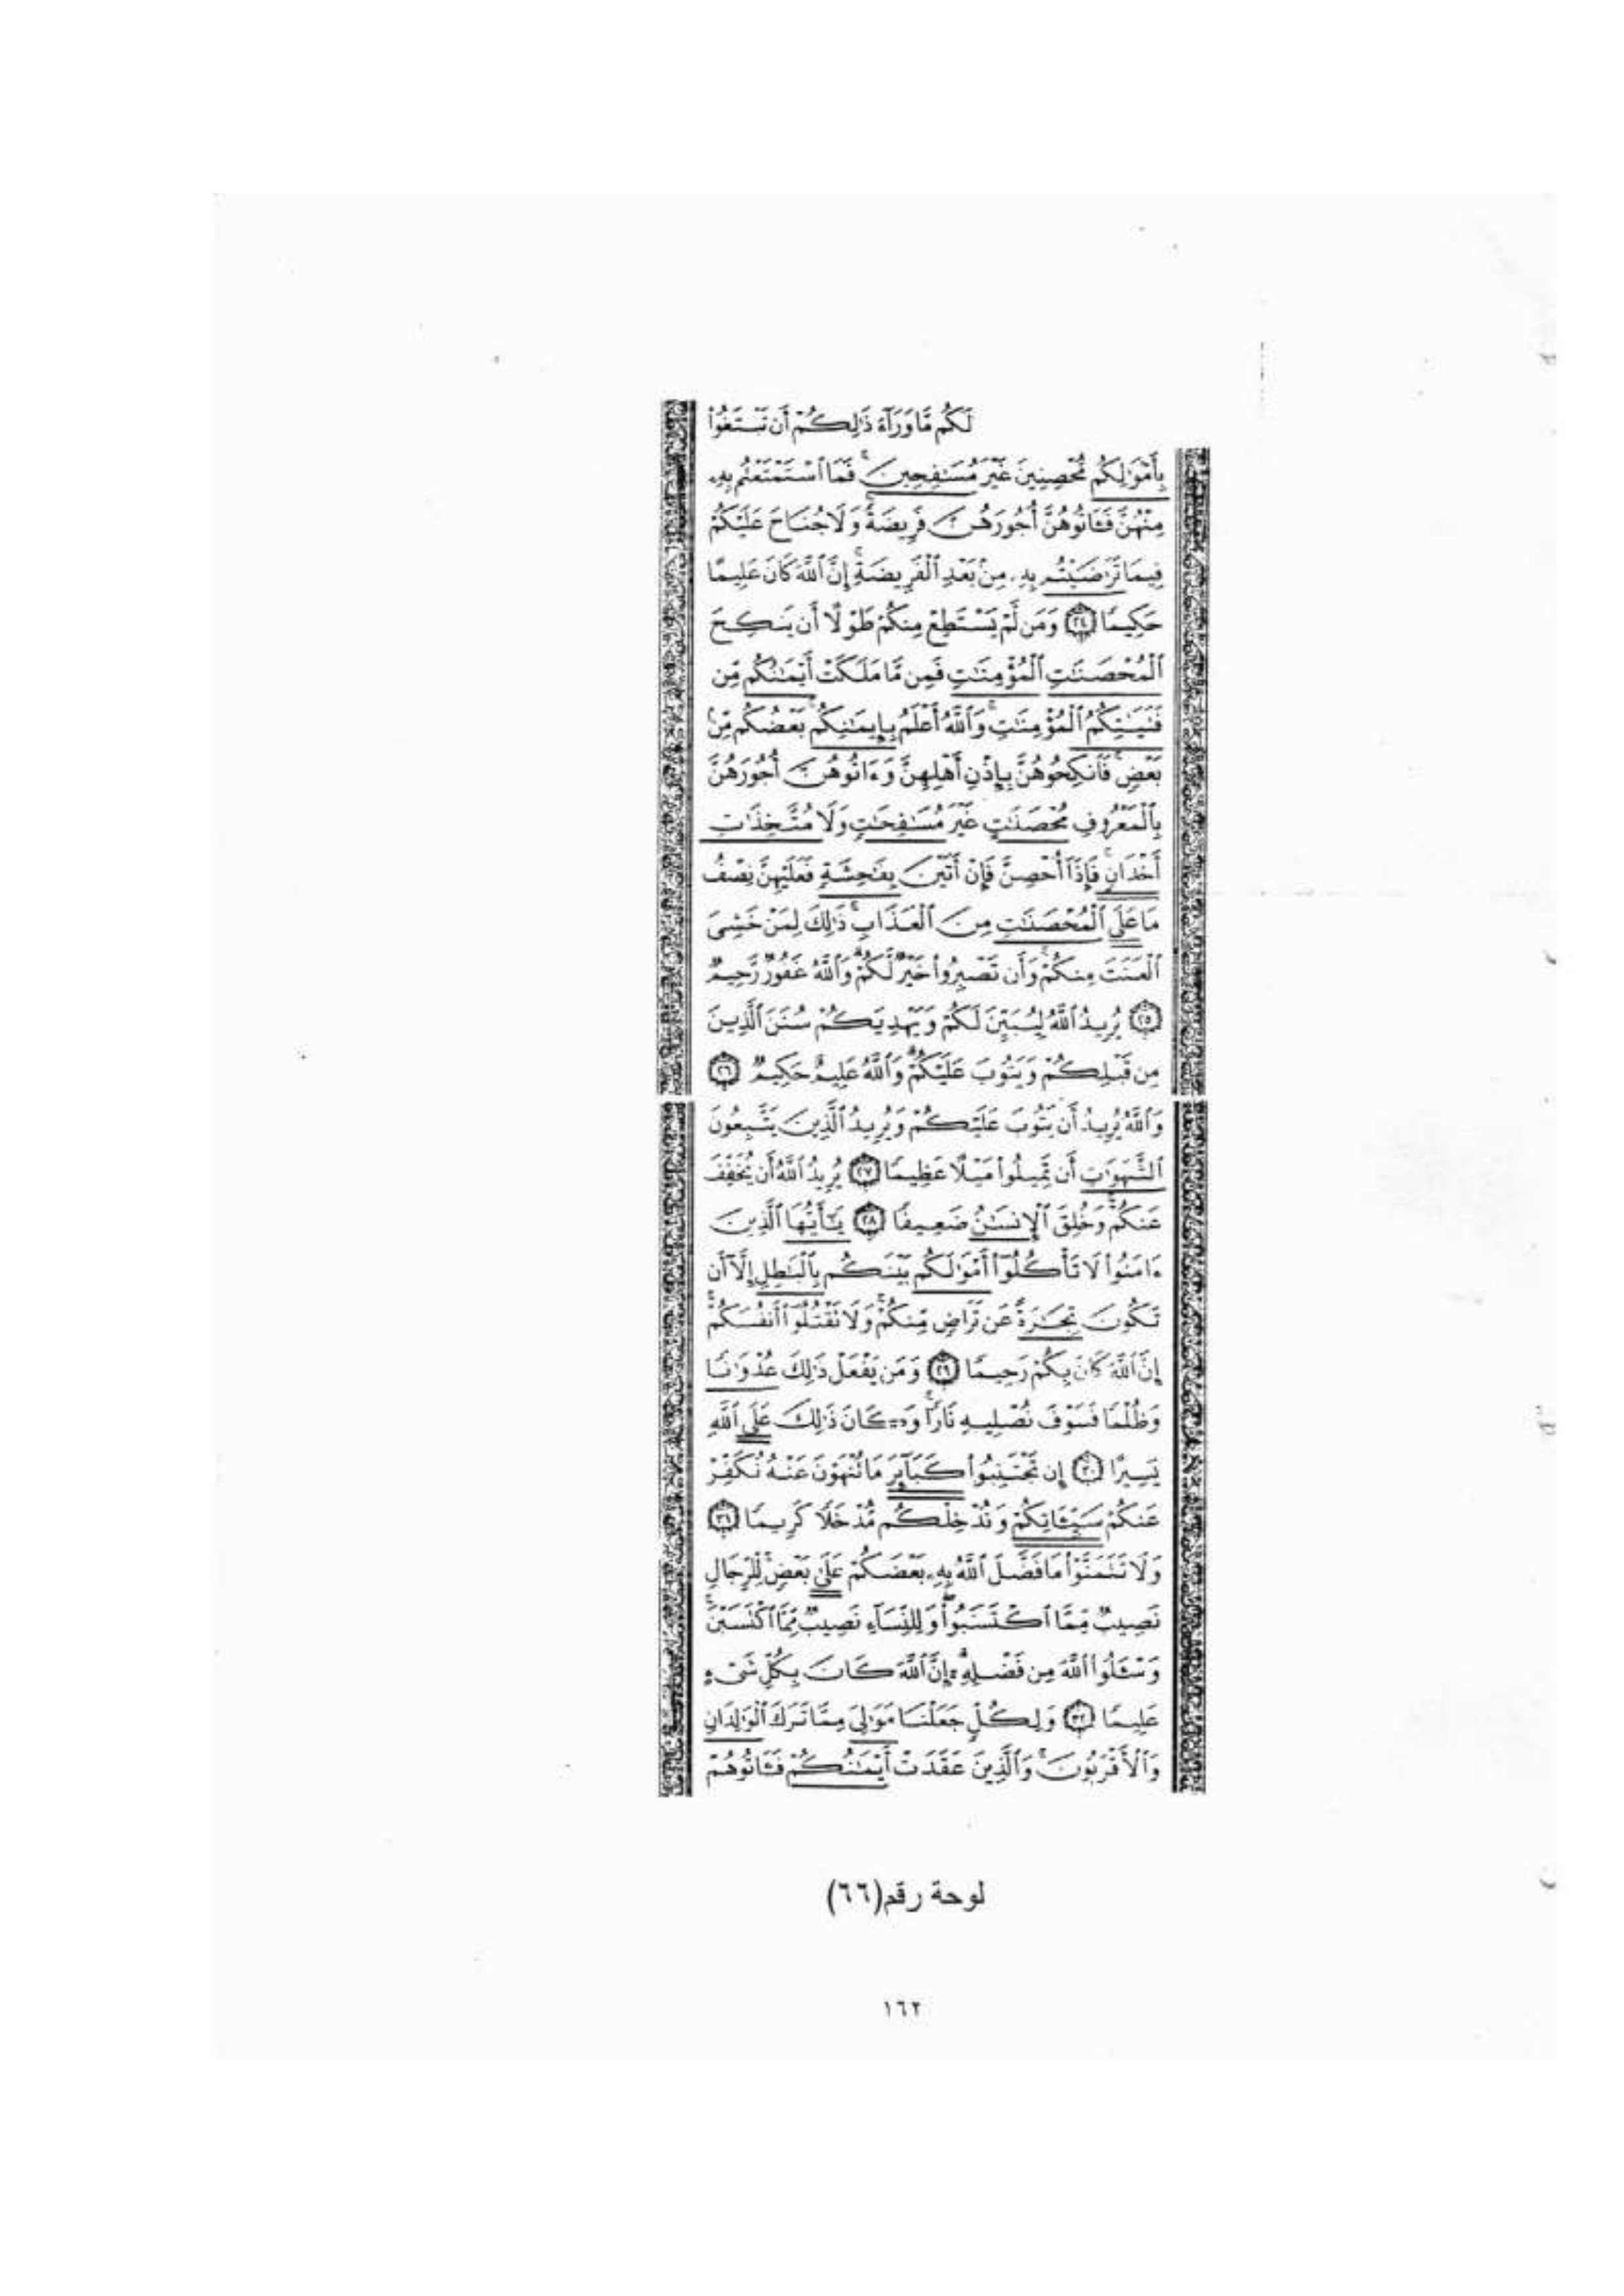 لَكُم مَّا وَرَآءَ ذَٰلِكُمْ أَن تَبْتَغُوا۟
بِأَمْوَٰلِكُم مُّحْصِنِينَ غَيْرَ مُسَـٰفِحِينَ ۚ فَمَا ٱسْتَمْتَعْتُم بِهِۦ
مِنْهُنَّ فَـَٔاتُوهُنَّ أُجُورَهُنَّ فَرِيضَةً ۚ وَلَا جُنَاحَ عَلَيْكُمْ
فِيمَا تَرَٰضَيْتُم بِهِۦ مِنۢ بَعْدِ ٱلْفَرِيضَةِ ۚ إِنَّ ٱللَّهَ كَانَ عَلِيمًا
حَكِيمًا ٢٤ وَمَن لَّمْ يَسْتَطِعْ مِنكُمْ طَوْلًا أَن يَنكِحَ
ٱلْمُحْصَنَـٰتِ ٱلْمُؤْمِنَـٰتِ فَمِن مَّا مَلَكَتْ أَيْمَـٰنُكُم مِّن
فَتَيَـٰتِكُمُ ٱلْمُؤْمِنَـٰتِ ۚ وَٱللَّهُ أَعْلَمُ بِإِيمَـٰنِكُم ۚ بَعْضُكُم مِّنۢ
بَعْضٍ ۚ فَٱنكِحُوهُنَّ بِإِذْنِ أَهْلِهِنَّ وَءَاتُوهُنَّ أُجُورَهُنَّ
بِٱلْمَعْرُوفِ مُحْصَنَـٰتٍ غَيْرَ مُسَـٰفِحَـٰتٍ وَلَا مُتَّخِذَٰتِ
أَخْدَانٍ ۚ فَإِذَآ أُحْصِنَّ فَإِنْ أَتَيْنَ بِفَـٰحِشَةٍ فَعَلَيْهِنَّ نِصْفُ
مَا عَلَى ٱلْمُحْصَنَـٰتِ مِنَ ٱلْعَذَابِ ۚ ذَٰلِكَ لِمَنْ خَشِىَ
ٱلْعَنَتَ مِنكُمْ ۚ وَأَن تَصْبِرُوا۟ خَيْرٌ لَّكُمْ ۗ وَٱللَّهُ غَفُورٌ رَّحِيمٌ
٢٥ يُرِيدُ ٱللَّهُ لِيُبَيِّنَ لَكُمْ وَيَهْدِيَكُمْ سُنَنَ ٱلَّذِينَ
مِن قَبْلِكُمْ وَيَتُوبَ عَلَيْكُمْ ۗ وَٱللَّهُ عَلِيمٌ حَكِيمٌ ٢٦
وَٱللَّهُ يُرِيدُ أَن يَتُوبَ عَلَيْكُمْ وَيُرِيدُ ٱلَّذِينَ يَتَّبِعُونَ
ٱلشَّهَوَٰتِ أَن تَمِيلُوا۟ مَيْلًا عَظِيمًا ٢٧ يُرِيدُ ٱللَّهُ أَن يُخَفِّفَ
عَنكُمْ ۚ وَخُلِقَ ٱلْإِنسَـٰنُ ضَعِيفًا ٢٨ يَـٰٓأَيُّهَا ٱلَّذِينَ
ءَامَنُوا۟ لَا تَأْكُلُوٓا۟ أَمْوَٰلَكُم بَيْنَكُم بِٱلْبَـٰطِلِ إِلَّآ أَن
تَكُونَ تِجَـٰرَةً عَن تَرَاضٍ مِّنكُمْ ۚ وَلَا تَقْتُلُوٓا۟ أَنفُسَكُمْ ۚ
إِنَّ ٱللَّهَ كَانَ بِكُمْ رَحِيمًا ٢٩ وَمَن يَفْعَلْ ذَٰلِكَ عُدْوَٰنًا
وَظُلْمًا فَسَوْفَ نُصْلِيهِ نَارًا ۚ وَكَانَ ذَٰلِكَ عَلَى ٱللَّهِ
يَسِيرًا ٣٠ إِن تَجْتَنِبُوا۟ كَبَآئِرَ مَا تُنْهَوْنَ عَنْهُ نُكَفِّرْ
عَنكُمْ سَيِّـَٔاتِكُمْ وَنُدْخِلْكُم مُّدْخَلًا كَرِيمًا ٣١
وَلَا تَتَمَنَّوْا۟ مَا فَضَّلَ ٱللَّهُ بِهِۦ بَعْضَكُمْ عَلَىٰ بَعْضٍ ۚ لِّلرِّجَالِ
نَصِيبٌ مِّمَّا ٱكْتَسَبُوا۟ ۖ وَلِلنِّسَآءِ نَصِيبٌ مِّمَّا ٱكْتَسَبْنَ ۚ
وَسْـَٔلُوا۟ ٱللَّهَ مِن فَضْلِهِۦٓ ۗ إِنَّ ٱللَّهَ كَانَ بِكُلِّ شَىْءٍ
عَلِيمًا ٣٢ وَلِكُلٍّ جَعَلْنَا مَوَٰلِىَ مِمَّا تَرَكَ ٱلْوَٰلِدَانِ
وَٱلْأَقْرَبُونَ ۚ وَٱلَّذِينَ عَقَدَتْ أَيْمَـٰنُكُمْ فَـَٔاتُوهُمْ
لوحة رقم(٦٦)
١٦٢